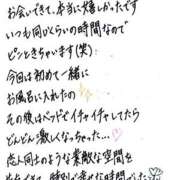 お会いできて、本当に嬉しかったです
いつも同じくらいの時間なので
ピンときちゃいます(笑)
今回は初めて一緒に
お風呂に入れたの
その後はベッドでイチャイチャしてたら
どんどん激しくなっちゃった…♡
恋人同士のような素敵な空間を